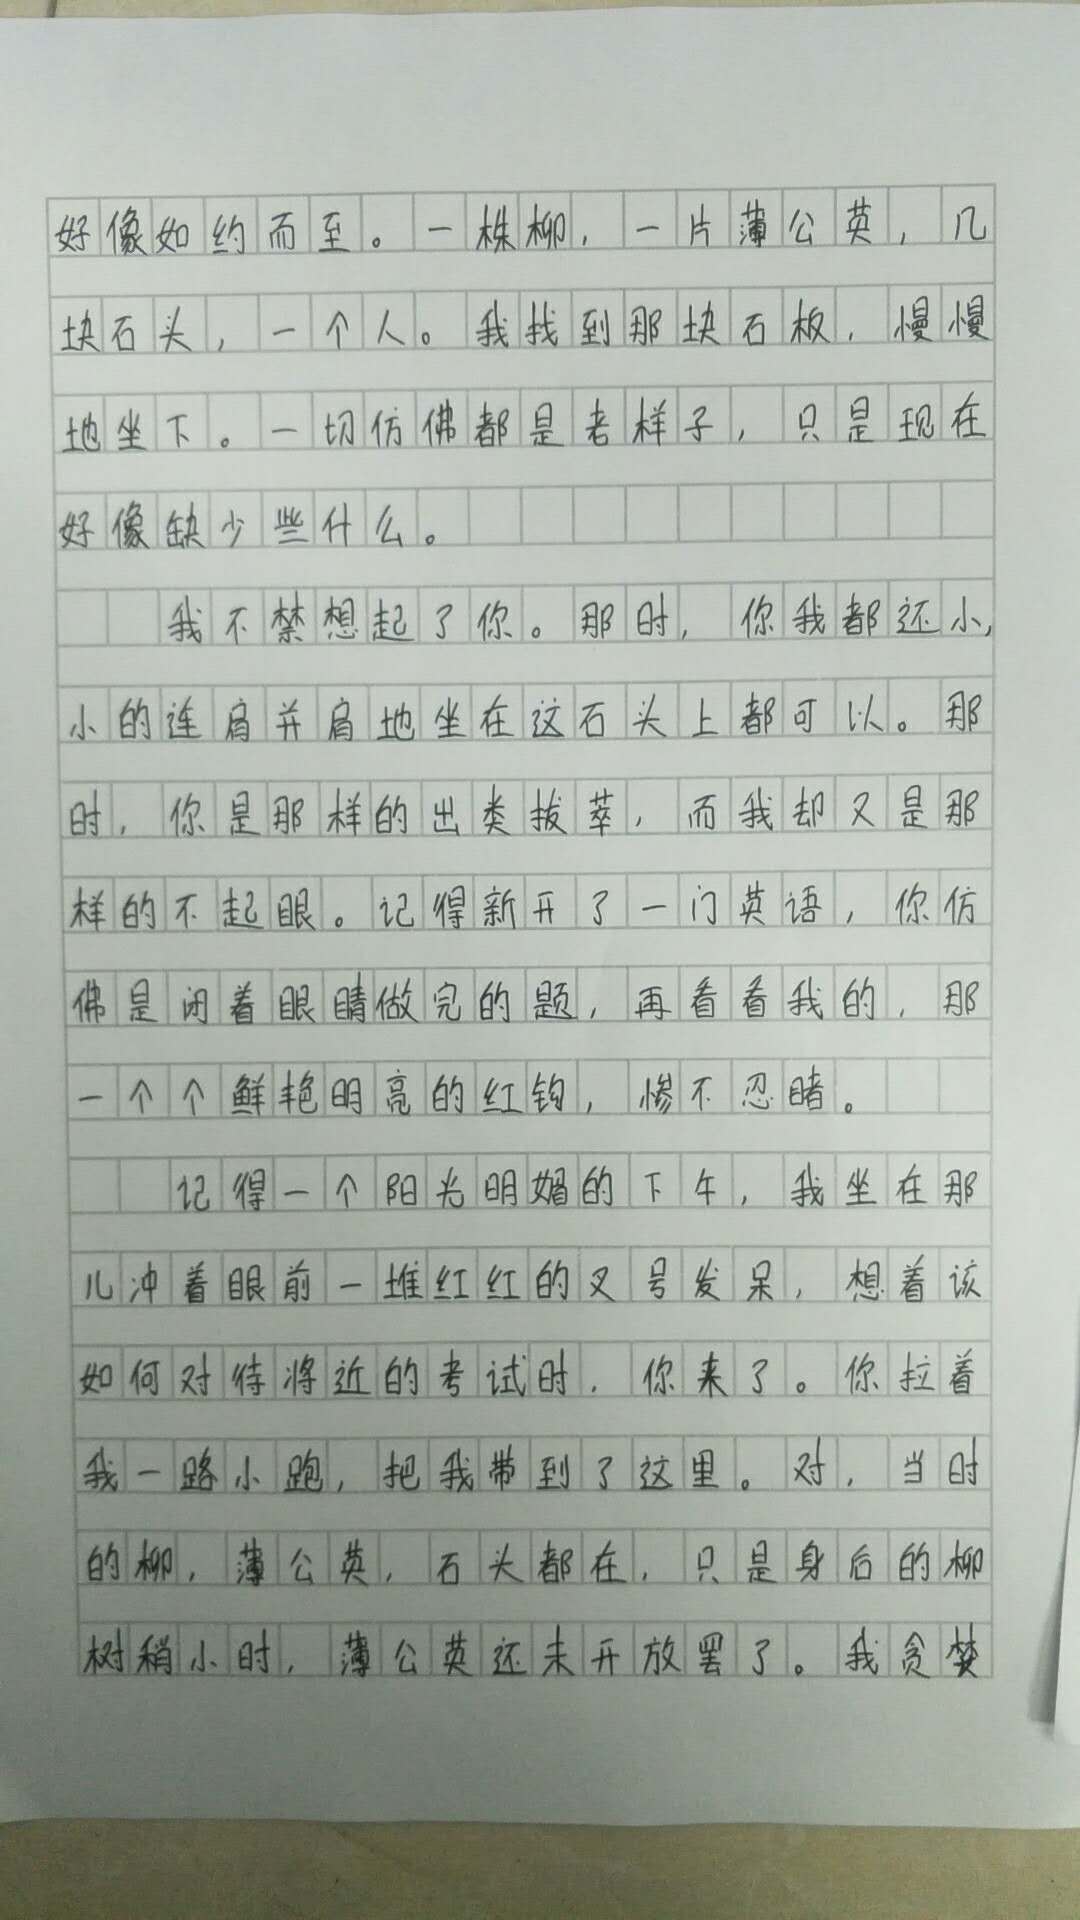 好像如约而至。一株柳，一片薄公英，几
块石头，一个人。我找到那块石板，慢慢
地坐下。一切仿佛都是老样子，只是现在
好像缺少些什么。
我不禁想起了你。那时，你我都还小，
小的连肩并肩地坐在这石头上都可以。那
时，你是那样的出类拔萃，而我却又是那
样的不起眼。记得新开了一门英语，你仿
佛是闭着眼睛做完的题，再看看我的，那
一个个鲜艳明亮的红钩，惨不忍睹。
记得一个阳光明媚的下午，我坐在那
儿冲着眼前一堆红红的叉号发呆，想着该
如何对待将近的考试时，你来了。你拉着
我一路小跑，把我带到了这里。对，当时
的柳，薄公英，石头都在，只是身后的柳
树稍小时，薄公英还未开放罢了。我贪婪